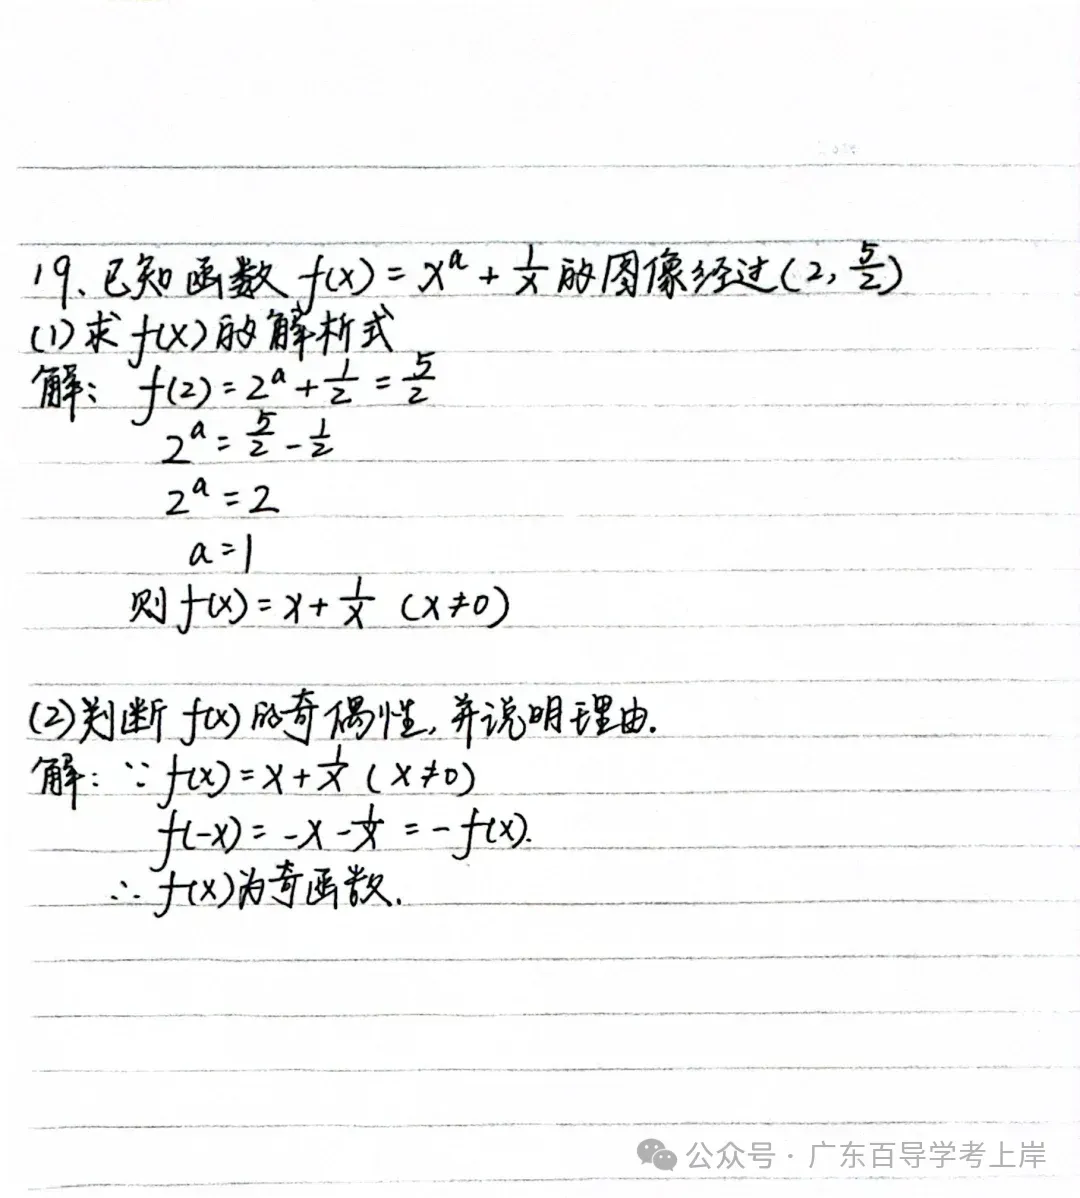 19、已知函数 f(x) = x^a + 1/x 的图像经过(2, 5/2)
(1)求 f(x) 的解析式
解: f(2) = 2^a + 1/2 = 5/2
2^a = 5/2 - 1/2
2^a = 2
a = 1
则 f(x) = x + 1/x (x≠0)
(2)判断 f(x) 的奇偶性, 并说明理由.
解: ∵ f(x) = x + 1/x (x≠0)
f(-x) = -x - 1/x = -f(x).
∴ f(x)为奇函数.
公众号·广东百导学考上岸